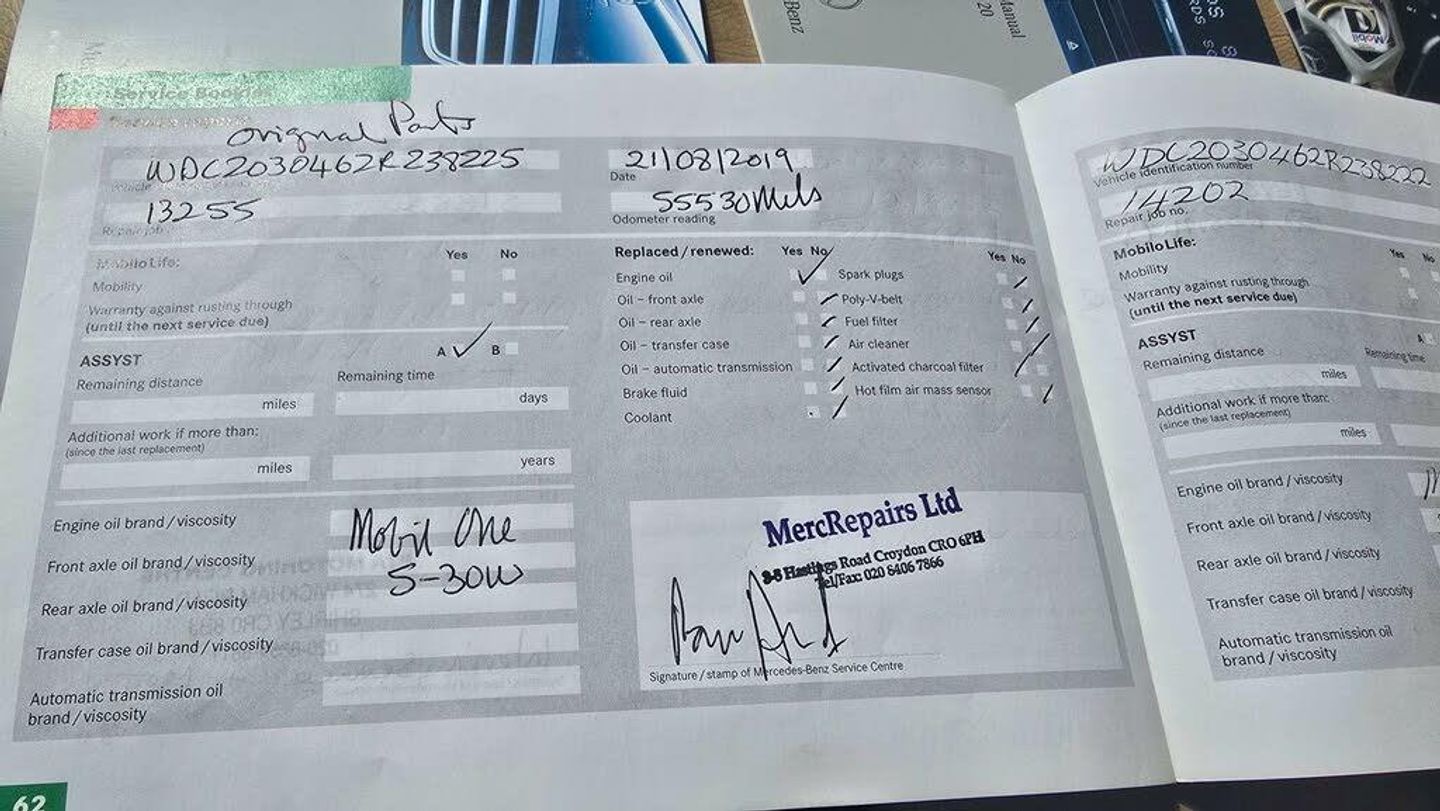 Benz
Manual
20
Mobil
Service Booklet
Original Parts
WDC2030462R238225
Vehicle
13255
Repair job
21/08/2019
Date
55530 Mils
Odometer reading
MobiloLife:
Yes No
Mobility
Warranty against rusting through
(until the next service due)
ASSYST
A ✓ B
Remaining distance
Remaining time
miles
days
Additional work if more than:
(since the last replacement)
miles
years
Engine oil brand / viscosity
Mobil One
Front axle oil brand / viscosity
5-30W
Rear axle oil brand / viscosity
Transfer case oil brand / viscosity
Automatic transmission oil
brand / viscosity
Replaced / renewed:
Yes No
Yes No
Engine oil
Spark plugs
Oil – front axle
Poly-V-belt
Oil – rear axle
Fuel filter
Oil – transfer case
Air cleaner
Oil – automatic transmission
Activated charcoal filter
Brake fluid
Hot film air mass sensor
Coolant
MercRepairs Ltd
Hastings Road Croydon CRO 6PH
Tel/Fax: 020 8406 7866
Signature / stamp of Mercedes-Benz Service Centre
62
WDC2030462R238222
Vehicle identification number
14202
Repair job no.
MobiloLife:
Yes No
Mobility
Warranty against rusting through
(until the next service due)
ASSYST
A
Remaining distance
Remaining time
miles
Additional work if more than:
(since the last replacement)
miles
Engine oil brand / viscosity
Front axle oil brand / viscosity
Rear axle oil brand / viscosity
Transfer case oil brand / viscosity
Automatic transmission oil
brand / viscosity